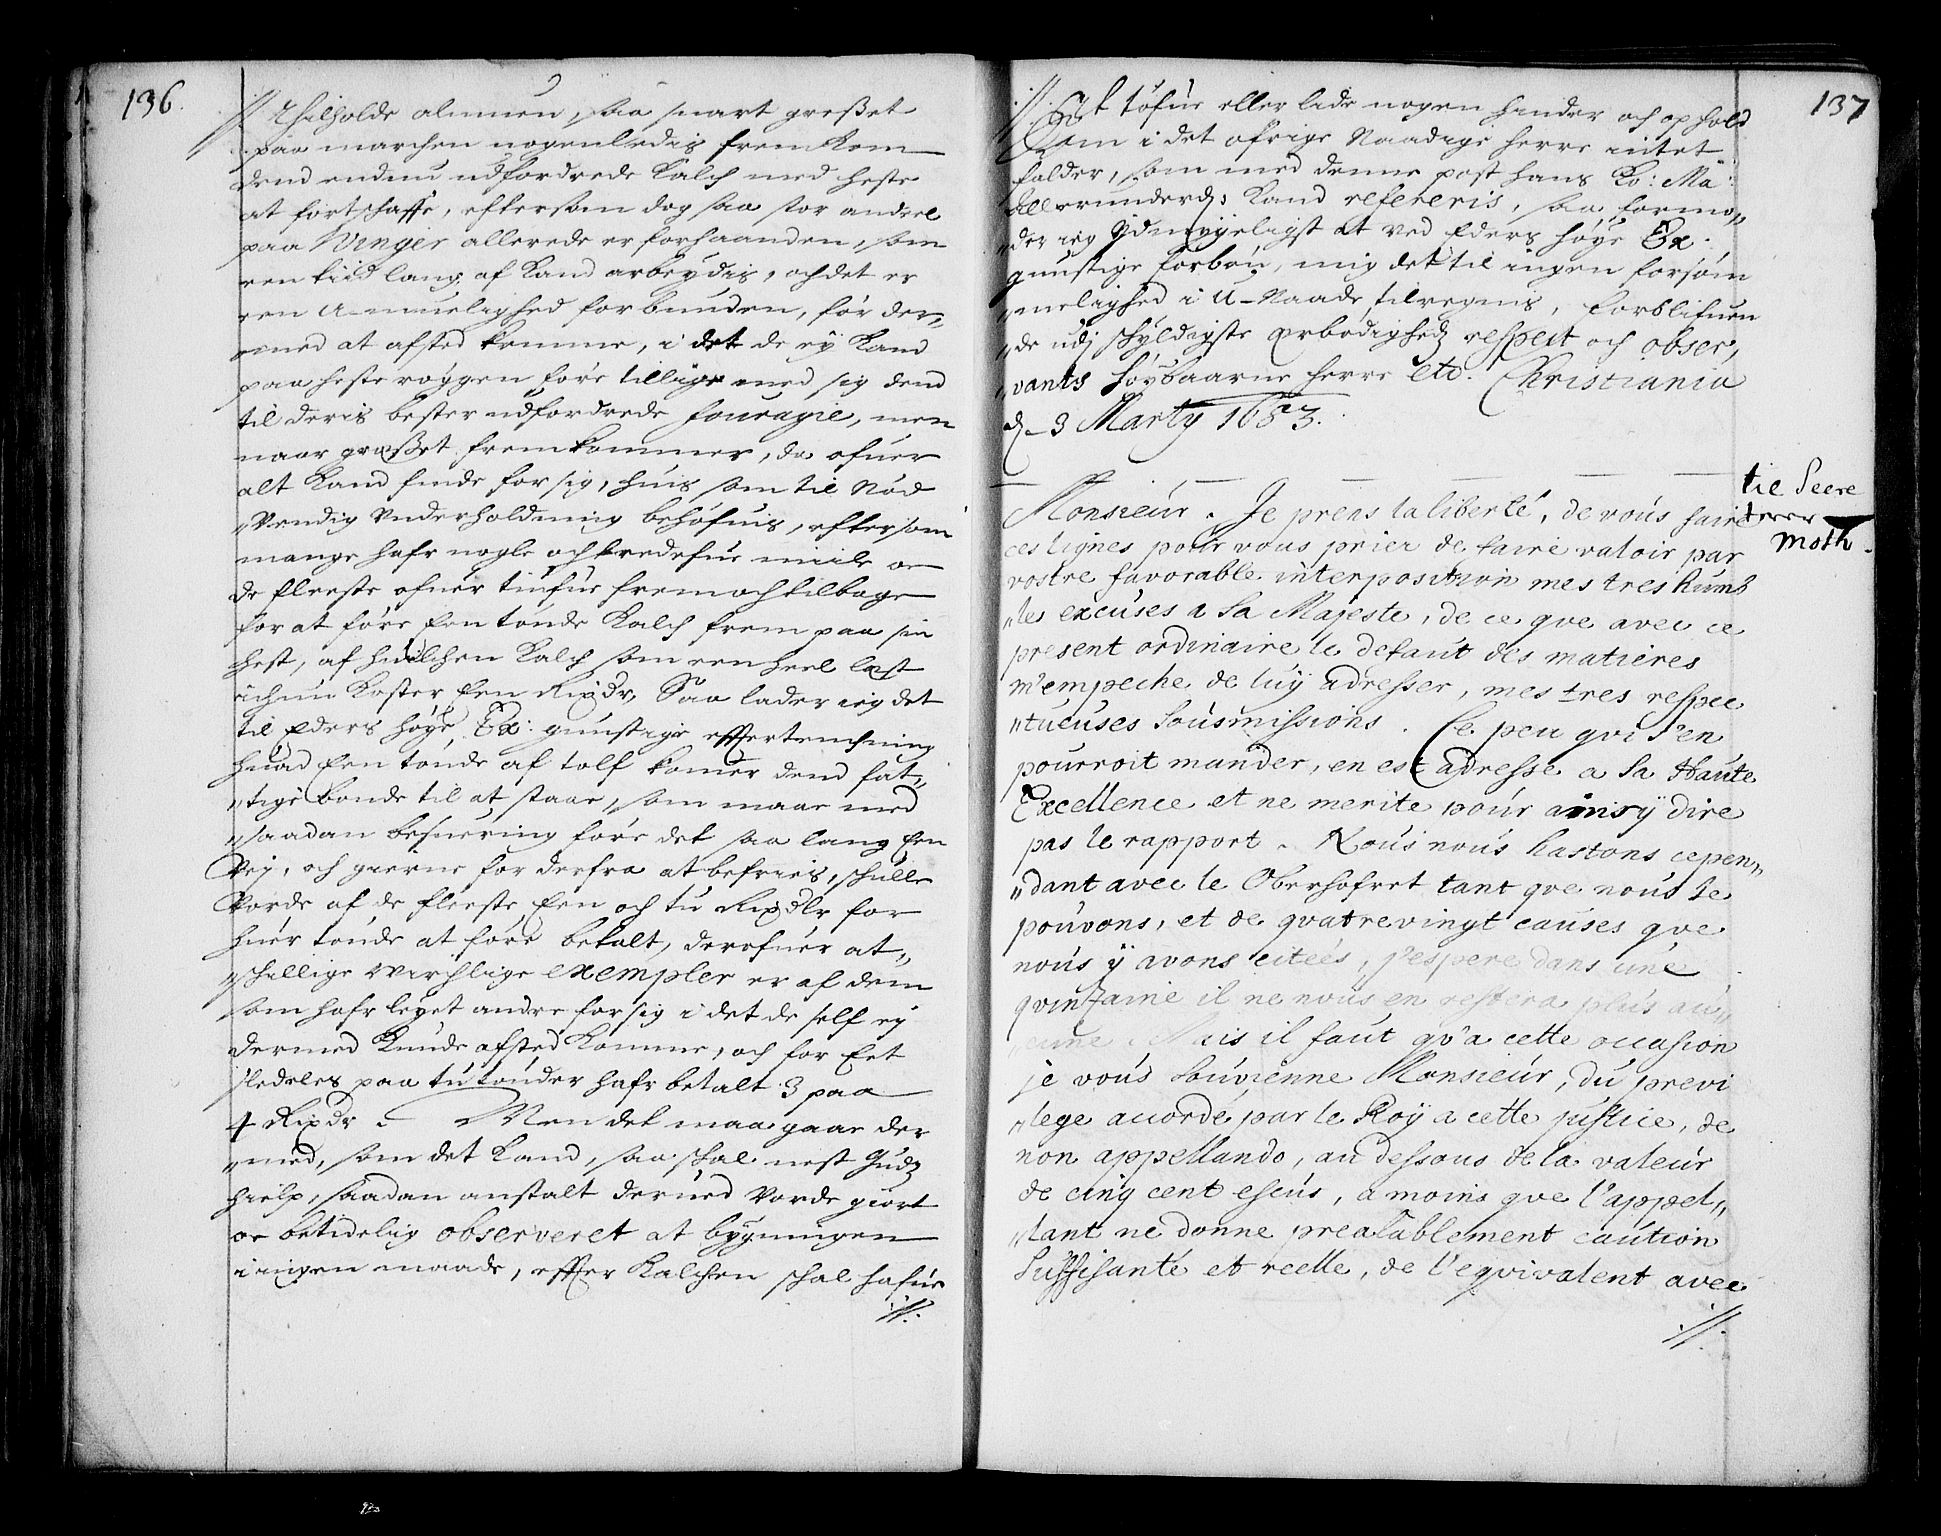 136.
// tilholde almuen, saa snart gresset
paa marchen nogenledis fremkom
dend endnu udfordrede Kalch med heste
at fortschaffe, eftersom dog saa stor andeel
paa Winger allerede er forhaanden, som
een tiid lang af kand arbeydis, och det er
een U-muelighed forbunden, før der„
„med at afsted komme, i det de ey kand
paa heste røggen føre tillige med sig dend
til deris bester udfordrede fouragie, men
naar græsset fremkommer, da ofuer
alt kand finde for sig, huis som til Nød
„vendig Vnderholdning behøfuis, eftersom
mange hafr nogle och tredefue miile oc
de fleeste ofuer tiufue frem och tilbage
for at føre Een tønde Kalch frem paa sin
hest, af huilchen Kalch som een heel læst
ichun koster Een Rixdr, Saa lader ieg det
til Eders høye Ex: gunstige eftertenchning
huad Een tønde af tolf komer dend fat„
„tige bonde til at staae, som maae med
„saadan besuering føre det saa lang Een
Vej, och gierne for derfra at befries, schulle
vorde af de fleeste Een och tu Rixdlr for
huer tønde at føre betalt, derofuer at„
„schillige virchlige exempler er af dem
som hafr leyet andre for sig i det de self ej
dermed kunde afsted komme, och for Eet
sledeles paa tu tønder hafr betalt 3 paa
4 Rixdr Men det maa gaae der
„med, som det kand, saa schal nest Gudz
hielp, saadan anstalt dermed vorde giort
oc betidelig observeret at bygningen
i ingen maade, efter Kalchen schal hafue
://:
137
://: tøfue eller lide nogen hinder och ophold
Som i det ofrige Naadige herre intet
falder, som med denne post hans Ko: Ma:
allerunderd: kand refereris, saa formo„
„der ieg Ydmygeligst at ved Eders høye Ex.
gunstige forbøn, mig det til ingen forsøm
„melighed i U-Naade tilregnis, forblifuen
„de udj schyldigste ærbødighed respect och obser„
„vants høybaarne herre etc. Christiania
d 3 Marty 1683.
til Secre
terer
Moth.
Monsieur. Je prens la liberté, de vous faire
ces lignes pour vous prier de faire valoir par
vostre favorable interposition mes tres humb
„les excuses a Sa Majeste, de ce que avec ce
present ordinaire le defaut des matieres
m'empeche de luy adresser, mes tres respec
„tueuses Sousmissions. Ce peu qui s'en
pourroit mander, en est adresse a Sa Haute
Excellence et ne merite pour ainsÿ dire
pas le rapport. Nous nous hastons cepen„
„dant avec le Oberhofret tant qve nous le
pouvons, et de qvatrevingt causes qve
nous ÿ avons citeés, j'espere dans une
qvinzaine il ne nous en restera plus au„
„cune. Mais il faut qv'a cette occasion
je vous souvienne Monsieur, du previ
„lege accordé par le Roÿ a cette justice, de
non appellando, au dessous de la valeur
de cinq cent escus, a moins qve l'appel„
„lant ne donne prealablement caution
Suffisante et reelle, de l'eqvivalent avec
://: